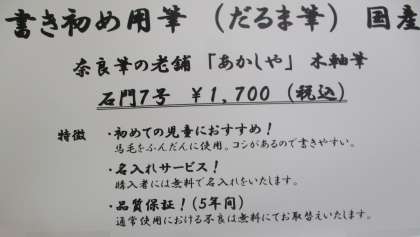 書き初め用筆 （だるま筆） 国産
奈良筆の老舗 「あかしや」 木軸筆
石門7号 ￥1,700 （税込）
特徴 ・初めての児童におすすめ！
馬毛をふんだんに使用。コシがあるので書きやすい。
・名入れサービス！
購入者には無料で名入れをいたします。
・品質保証！（5年間）
通常使用における不良は無料にてお取替えいたします。